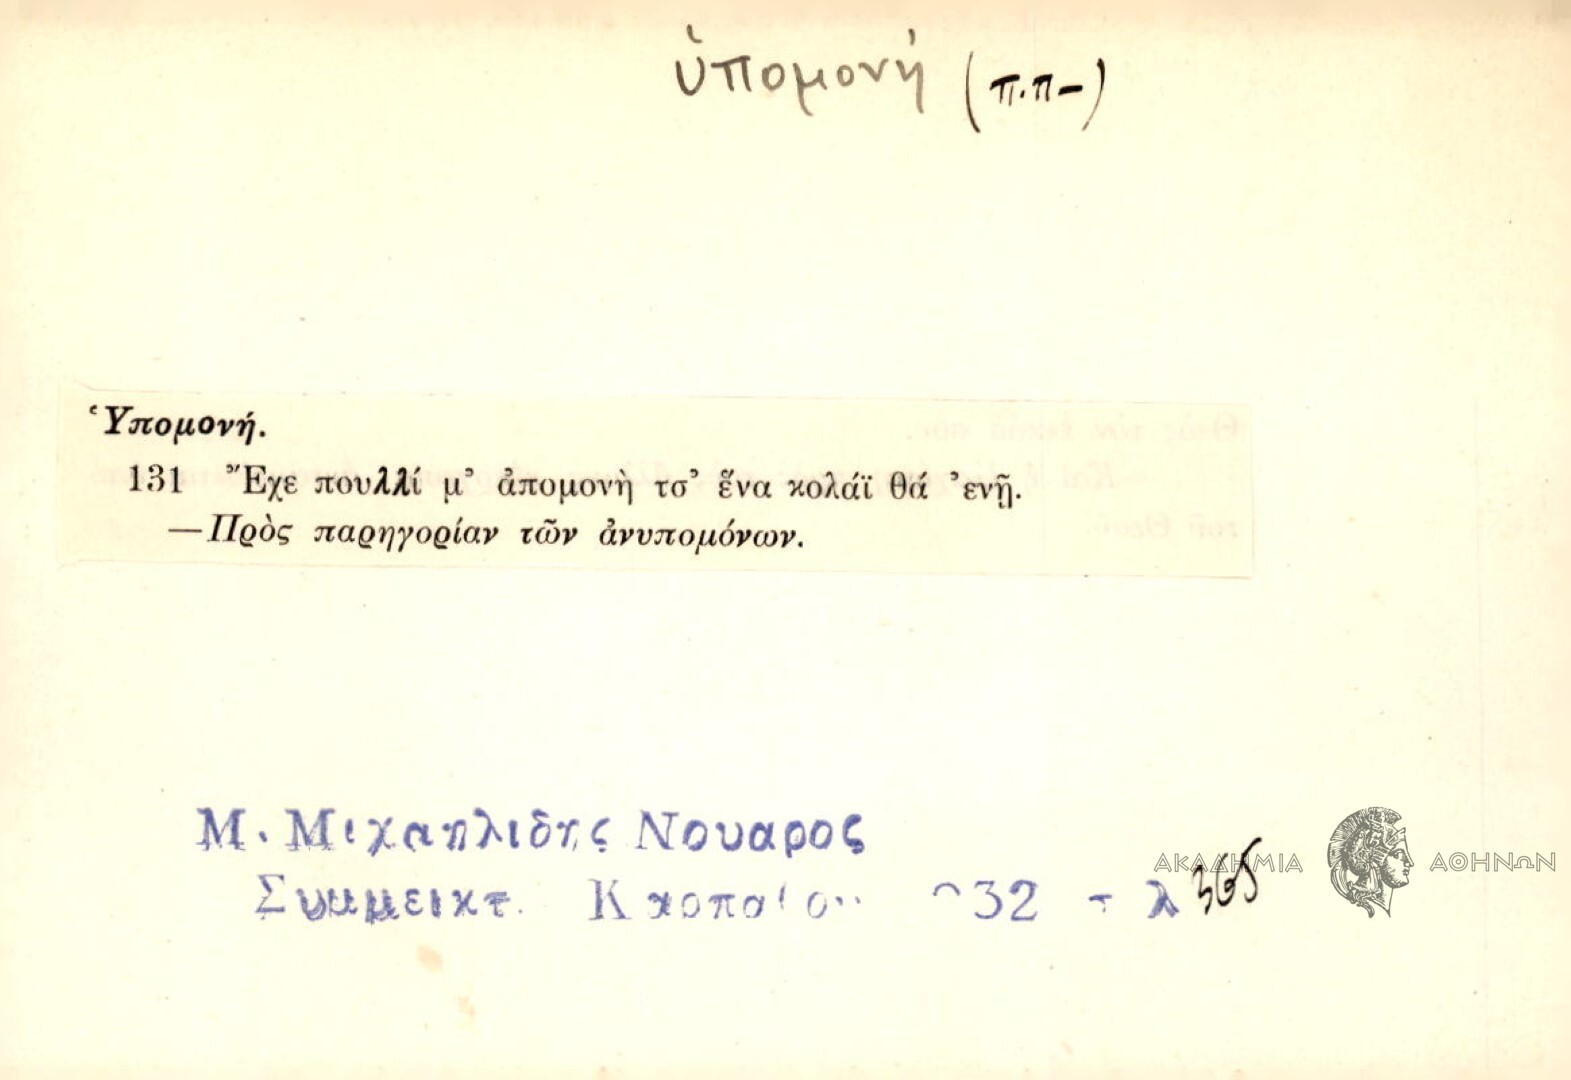 ὑπομονή (π.π-)
Ὑπομονή.
131 Ἔχε πουλλί μ' ἀπομονὴ τσ' ἕνα κολάϊ θά 'ενῇ.
—Πρὸς παρηγορίαν τῶν ἀνυπομόνων.
Μ. Μιχαηλιδης Νουαρος
Συμμεικτ. 32
ΑΚΑΔΗΜΙΑ ΑΘΗΝΩΝ